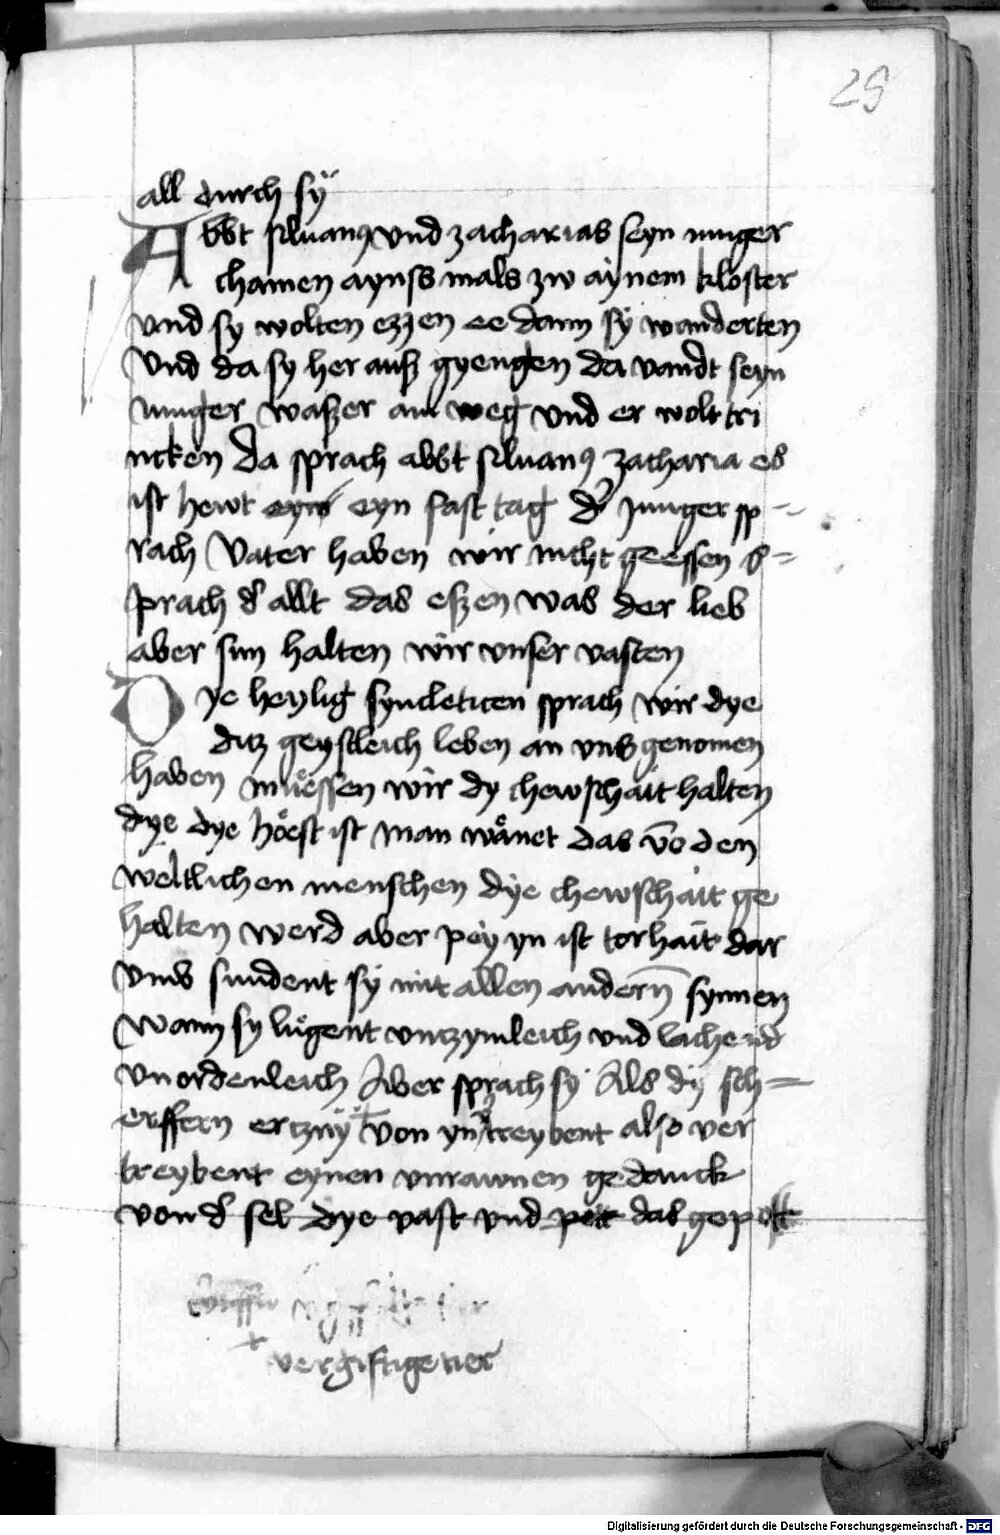 25
all durch sÿ
Abbt siluanꝰ vnd zacharias seyn iunger
chamen aynss mals zw aÿnem kloster
vnd sy wolten ezzen ee dann sÿ wanderten
Vnd da sy her auß gyengen da vandt seyn
iunger waßer am weg vnd er wolt tri
ncken Da sprach abbt siluanꝰ zacharia es
ist hewt eyn fast tag dʼ Junger sp=
rach Vater haben wir nicht geessen s=
prach dʼ allt das eßen was der lieb
aber sun halten wir vnser vasten
Dye heylig syncleticen sprach wir dye
ditz geystleich leben an vns genomen
haben müessen wir dy chewschait halten
dye dye höest ist Man wänet das vō den
weltlichen menschen dÿe chewschait ge
halten werd aber peÿ yn ist torhait dar
vmb sundent sÿ mit allen andern̄ synnen
Wann sy lügent vnczymleich vnd lachend
vnordenleich Aber sprach sÿ Als dÿ sch=
erffern ercznÿ von yn treybent also ver
treybent eynen vnrawnen gedanck
von dʼ sel dye vast vnd pett das gepott
vergiftige tier
Digitalisierung gefördert durch die Deutsche Forschungsgemeinschaft - DFG